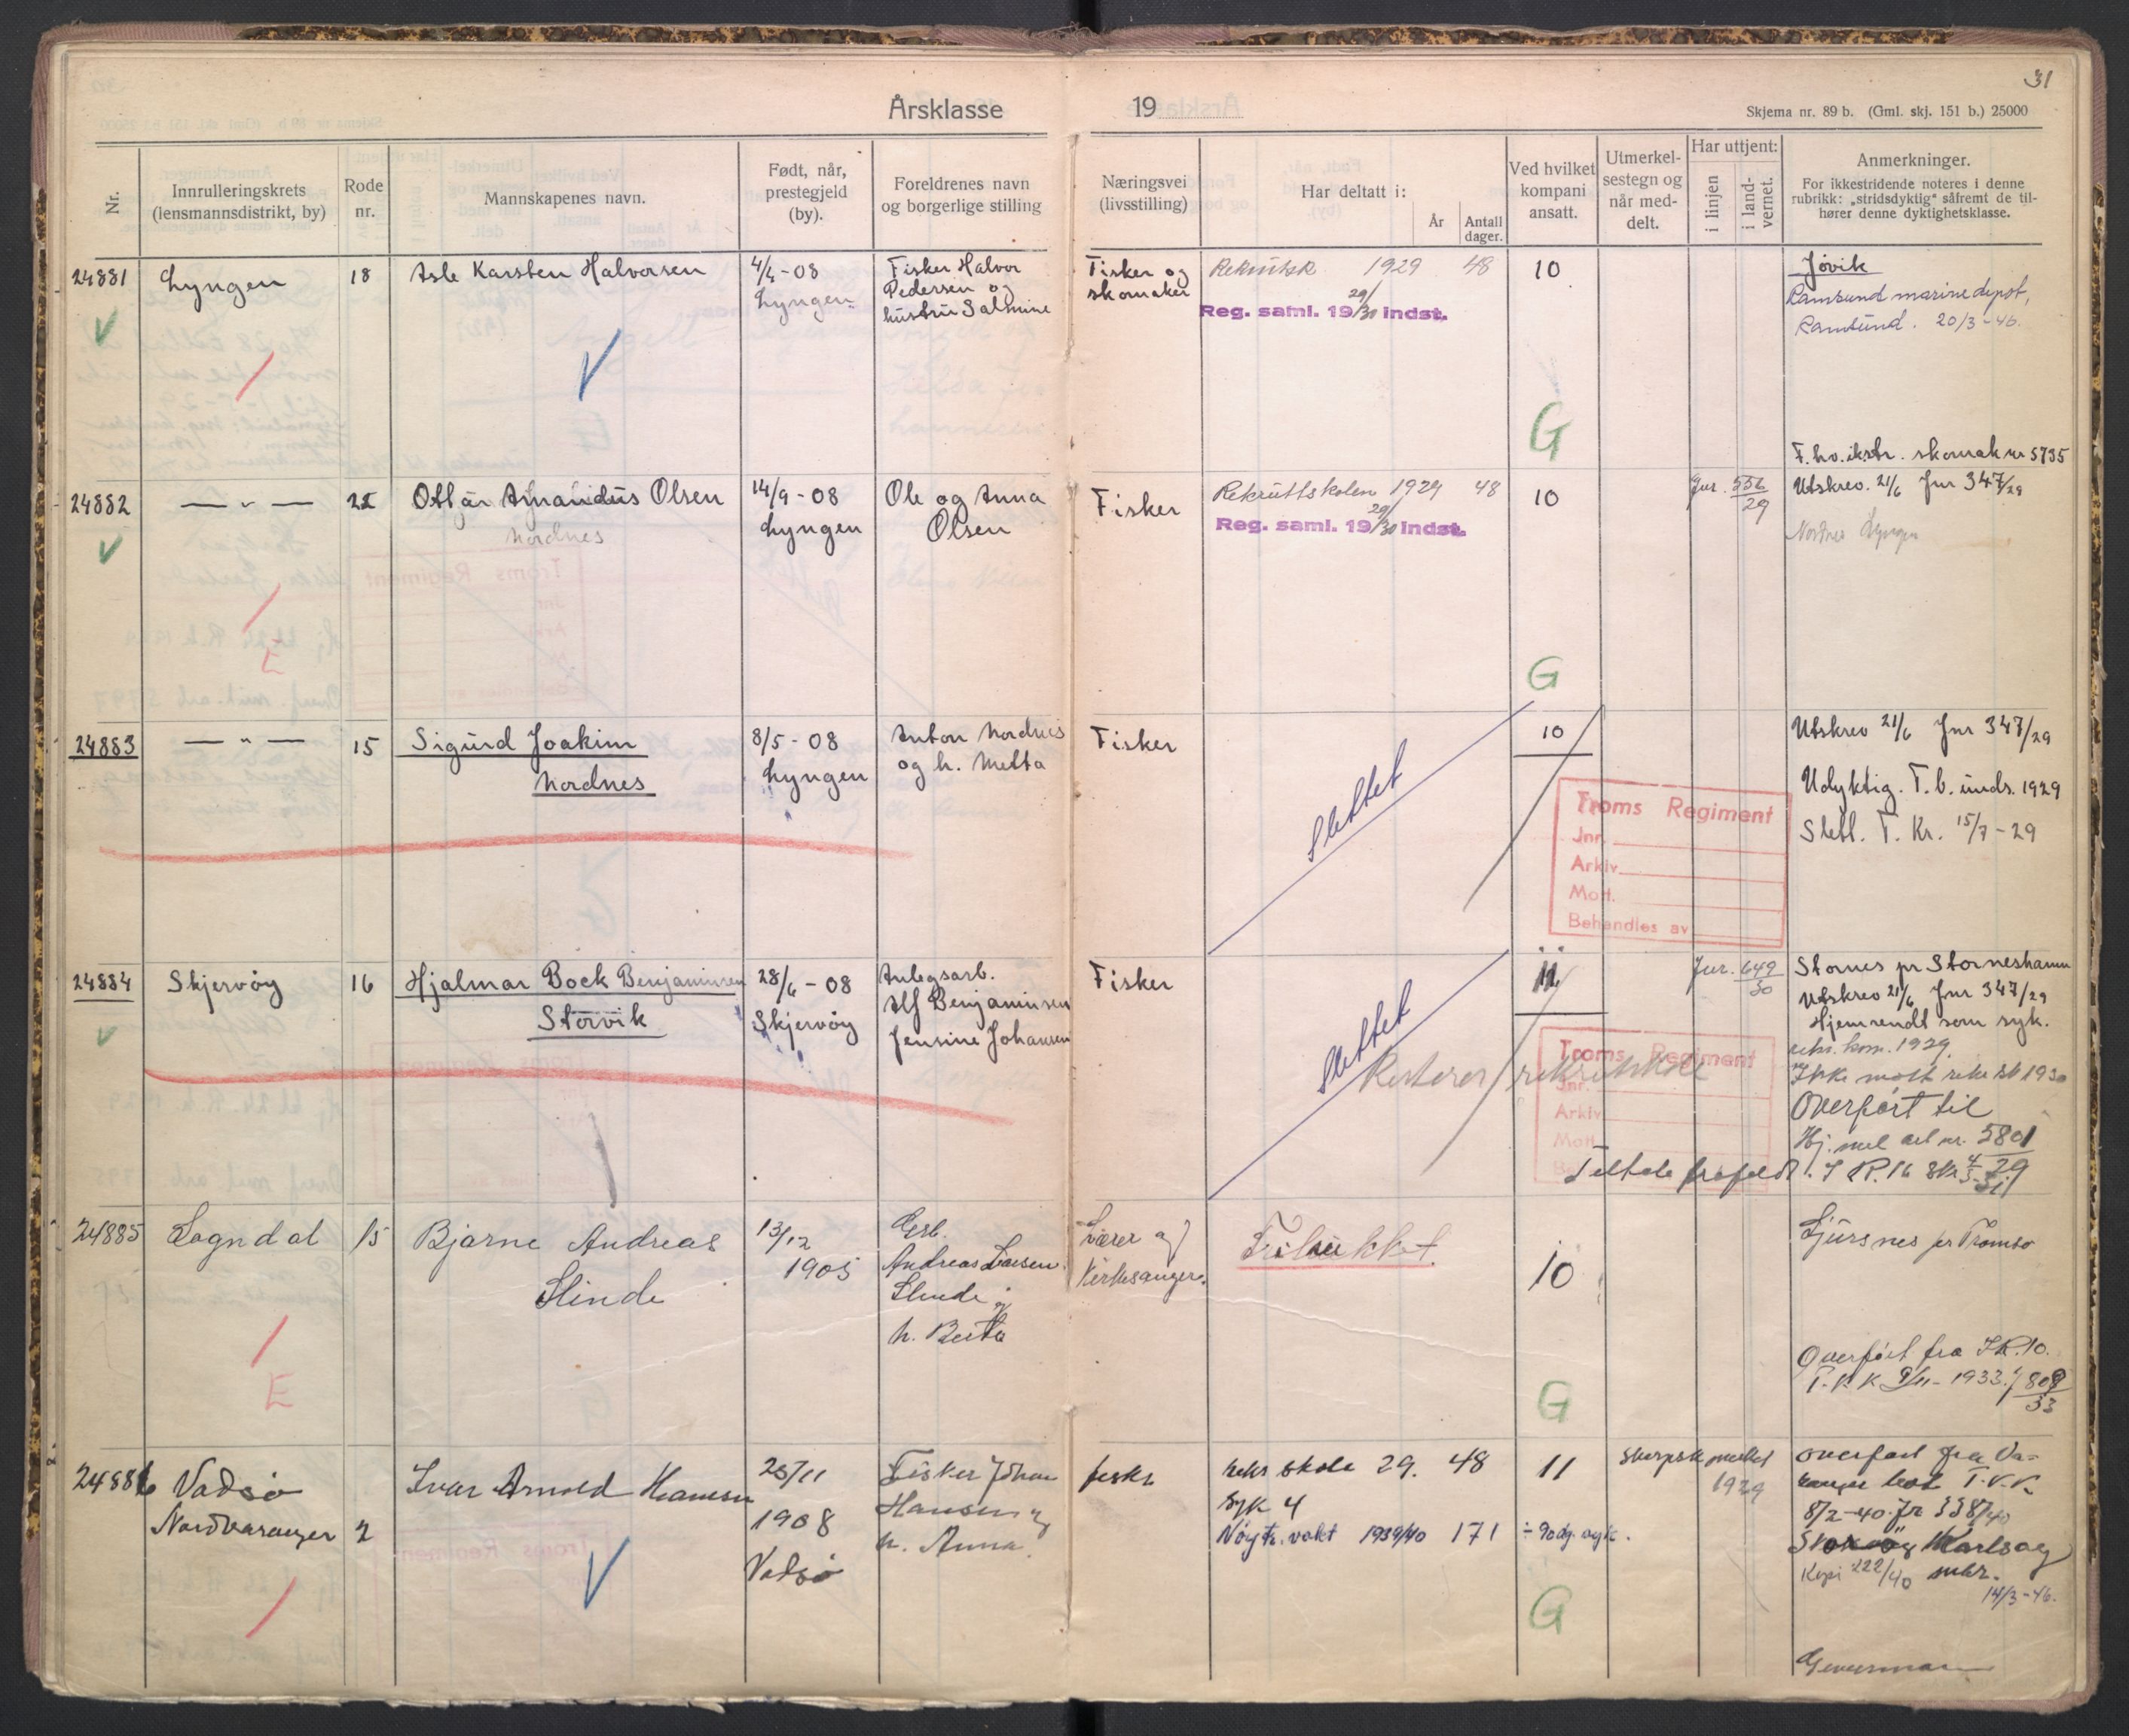 31
Årsklasse 19
Skjema nr. 89 b. (Gml. skj. 151 b.) 25000
Nr.
Innrulleringskrets
(lensmannsdistrikt, by)
Rode
nr.
Mannskapenes navn.
Født, når,
prestegjeld
(by).
Foreldrenes navn
og borgerlige stilling
Næringsvei
(livsstilling)
Har deltatt i:
År
Antall
dager.
Ved hvilket
kompani
ansatt.
Utmerkel-
sestegn og
når med-
delt.
Har uttjent:
i linjen
i land-
vernet.
Anmerkninger.
For ikkestridende noteres i denne
rubrikk: „stridsdyktig" såfremt de til-
hører denne dyktighetsklasse.
24881
Lyngen
18
Asle Karsten Halvorsen
4/4-08
Lyngen
Fisker Halvor
Pedersen og
hustru Salmine
Fisker og
skomaker
Rekrutsk 1929 48
29/
Reg. saml. 19/30 indst.
10
G
Jøvik
Ramsund marinedepot,
Ramsund. 20/3-46.
F. ho. ikstr. skomak nr 5735
24882
— " —
Ottar Amandus Olsen
Nordnes
14/9-08
Lyngen
Ole og Anna
Olsen
Fisker
Rekruttskolen 1929 48
29/
Reg. saml. 19/30 indst.
10
G
Jnr. 556
29
Utskrev. 21/6 Jnr 347/29
Nordnes Lyngen
E
24883
— " —
15
Sigurd Joakim
Nordnes
8/5-08
Lyngen
Anton Nordnes
og h. Metta
Fisker
Slettet
10
Troms Regiment
Jnr.
Arkiv
Mott.
Behandles av
Utskrev 21/6 Jnr 347/29
Udyktig. T. b. unds. 1929
Slett. T. Kr. 15/7-29
24884
Skjervøy
16
Hjalmar Bock Benjaminsen
Storvik
28/6-08
Skjervøy
Anlegsarb.
Alf Benjaminsen
Jensine Johansen
Fisker
Slettet
Resterer rekrutskole
11
Troms Regiment
Jnr.
Arkiv
Mott.
Jnr. 649
30
Stornes pr Storneshamn
Utskrev 21/6 Jnr 347/29
Hjemsendt som syk.
1929
Ikke møtt 1930
Overført til
Hj. nr. 5801
24885
Sogndal
15
Bjarne Andreas
Slinde
13/12
1905
Andreas Larsen
Slinde og
h. Berta
Lærer og
Kirkesanger.
Frilukket.
10
G
Sjursnes pr Tromsø
Overført fra I.R. 10.
1933. 808
33
E
24886
Vadsø
Nordvaranger
2
Ivar Arnold Hansen
25/11
1908
Vadsø
Fisker Johan
Hansen og
h. Anna.
fisker
rekr skole 29. 48
syk 4
Nøytr. vakt 1939/40 171
÷ 90dg. syk.
11
G
1929
overført fra Va-
8/2-40. Jr 338/40
Karlsøy
Kopi 222/40
14/3-46.